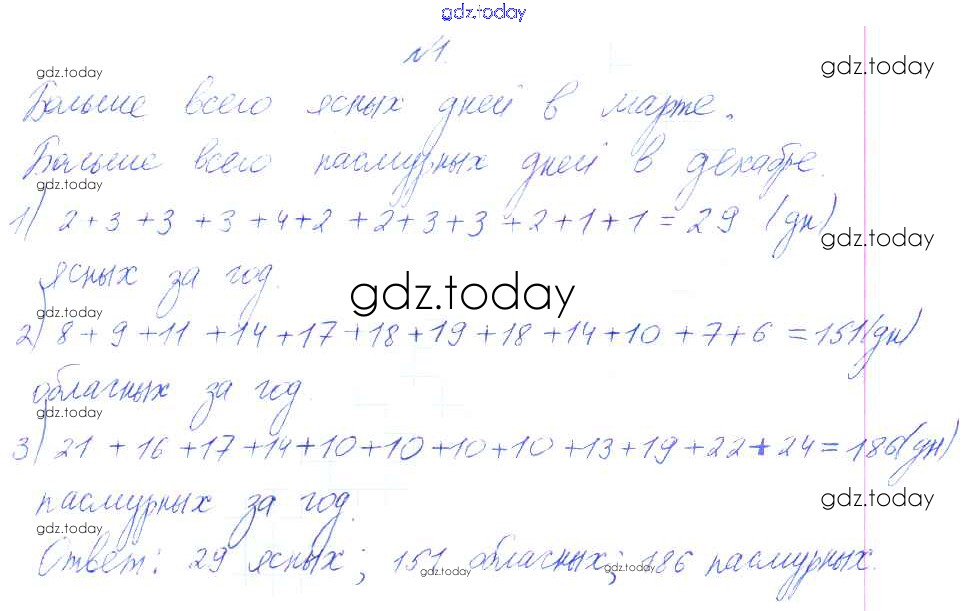 gdz.today
№1.
gdz.today gdz.today
Больше всего ясных дней в марте.
Больше всего пасмурных дней в декабре.
gdz.today
1) 2+3+3+3+4+2+2+3+3+2+1+1=29 (дн)
gdz.today
ясных за год.
gdz.today
gdz.today
2) 8+9+11+14+17+18+19+18+14+10+7+6=151(дн)
облачных за год.
gdz.today
3) 21+16+17+14+10+10+10+10+13+19+22+24=186(дн)
пасмурных за год.
gdz.today
gdz.today
Ответ: 29 ясных; 151 облачных; 186 пасмурных.
gdz.today gdz.today